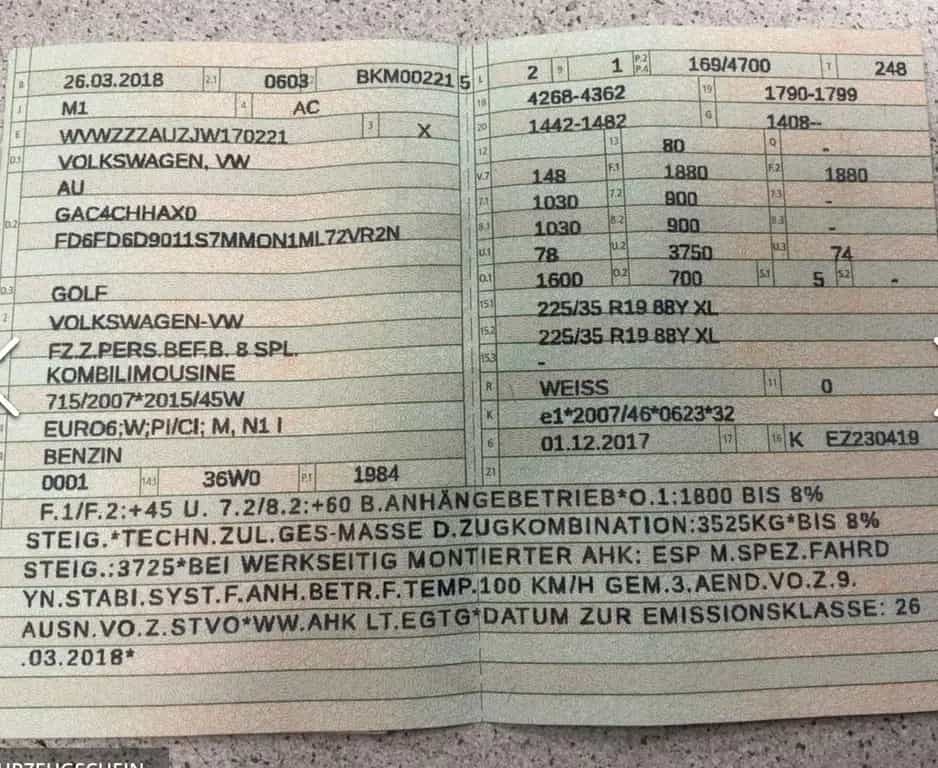 B 26.03.2018 2.1 0603 2.2 BKM002215
J M1 4 AC
E WVWZZZAUZJW170221 3 X
D.1 VOLKSWAGEN, VW
AU
D.2 GAC4CHHAX0
FD6FD6D9011S7MMON1ML72VR2N
D.3 GOLF
2 VOLKSWAGEN-VW
FZ.Z.PERS.BEF.B. 8 SPL.
KOMBILIMOUSINE
715/2007*2015/45W
EURO6;W;PI/CI; M, N1 I
BENZIN
0001 14.1 36W0 P.1 1984
L 2 9 1 P.2 P.4 169/4700 T 248
18 4268-4362 19 1790-1799
20 1442-1482 G 1408--
12 13 80 Q -
V.7 148 F.1 1880 F.2 1880
7.1 1030 7.2 900 7.3 -
8.1 1030 8.2 900 8.3 -
U.1 78 U.2 3750 U.3 74
O.1 1600 O.2 700 S.1 5 S.2 -
15.1 225/35 R19 88Y XL
15.2 225/35 R19 88Y XL
15.3 -
R WEISS 11 0
K e1*2007/46*0623*32
6 01.12.2017 17 16 K EZ230419
21
F.1/F.2:+45 U. 7.2/8.2:+60 B.ANHÄNGEBETRIEB*O.1:1800 BIS 8%
STEIG.*TECHN.ZUL.GES-MASSE D.ZUGKOMBINATION:3525KG*BIS 8%
STEIG.:3725*BEI WERKSEITIG MONTIERTER AHK: ESP M.SPEZ.FAHRD
YN.STABI.SYST.F.ANH.BETR.F.TEMP.100 KM/H GEM.3.AEND.VO.Z.9.
AUSN.VO.Z.STVO*WW.AHK LT.EGTG*DATUM ZUR EMISSIONSKLASSE: 26
.03.2018*